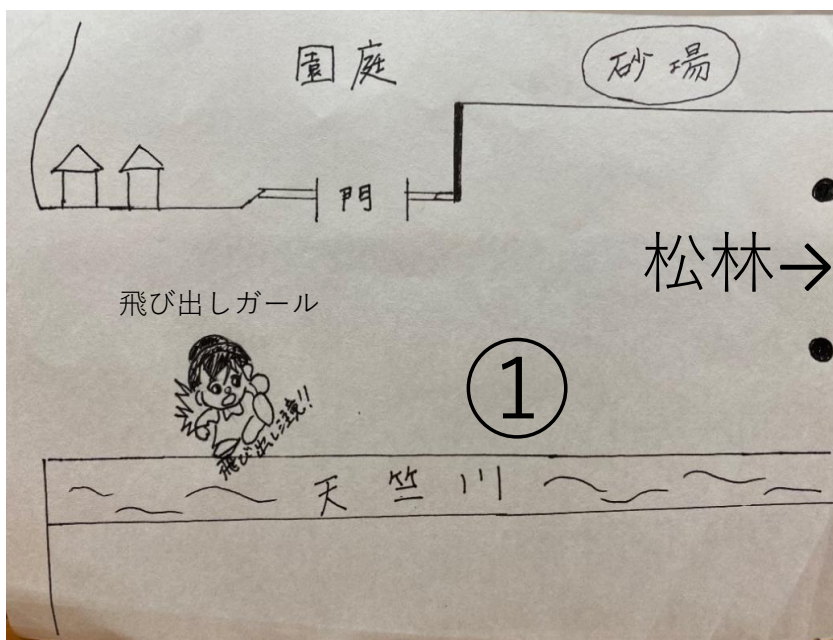 園庭
砂場
門
松林→
飛び出しガール
①
飛び出し注意!!
天竺川